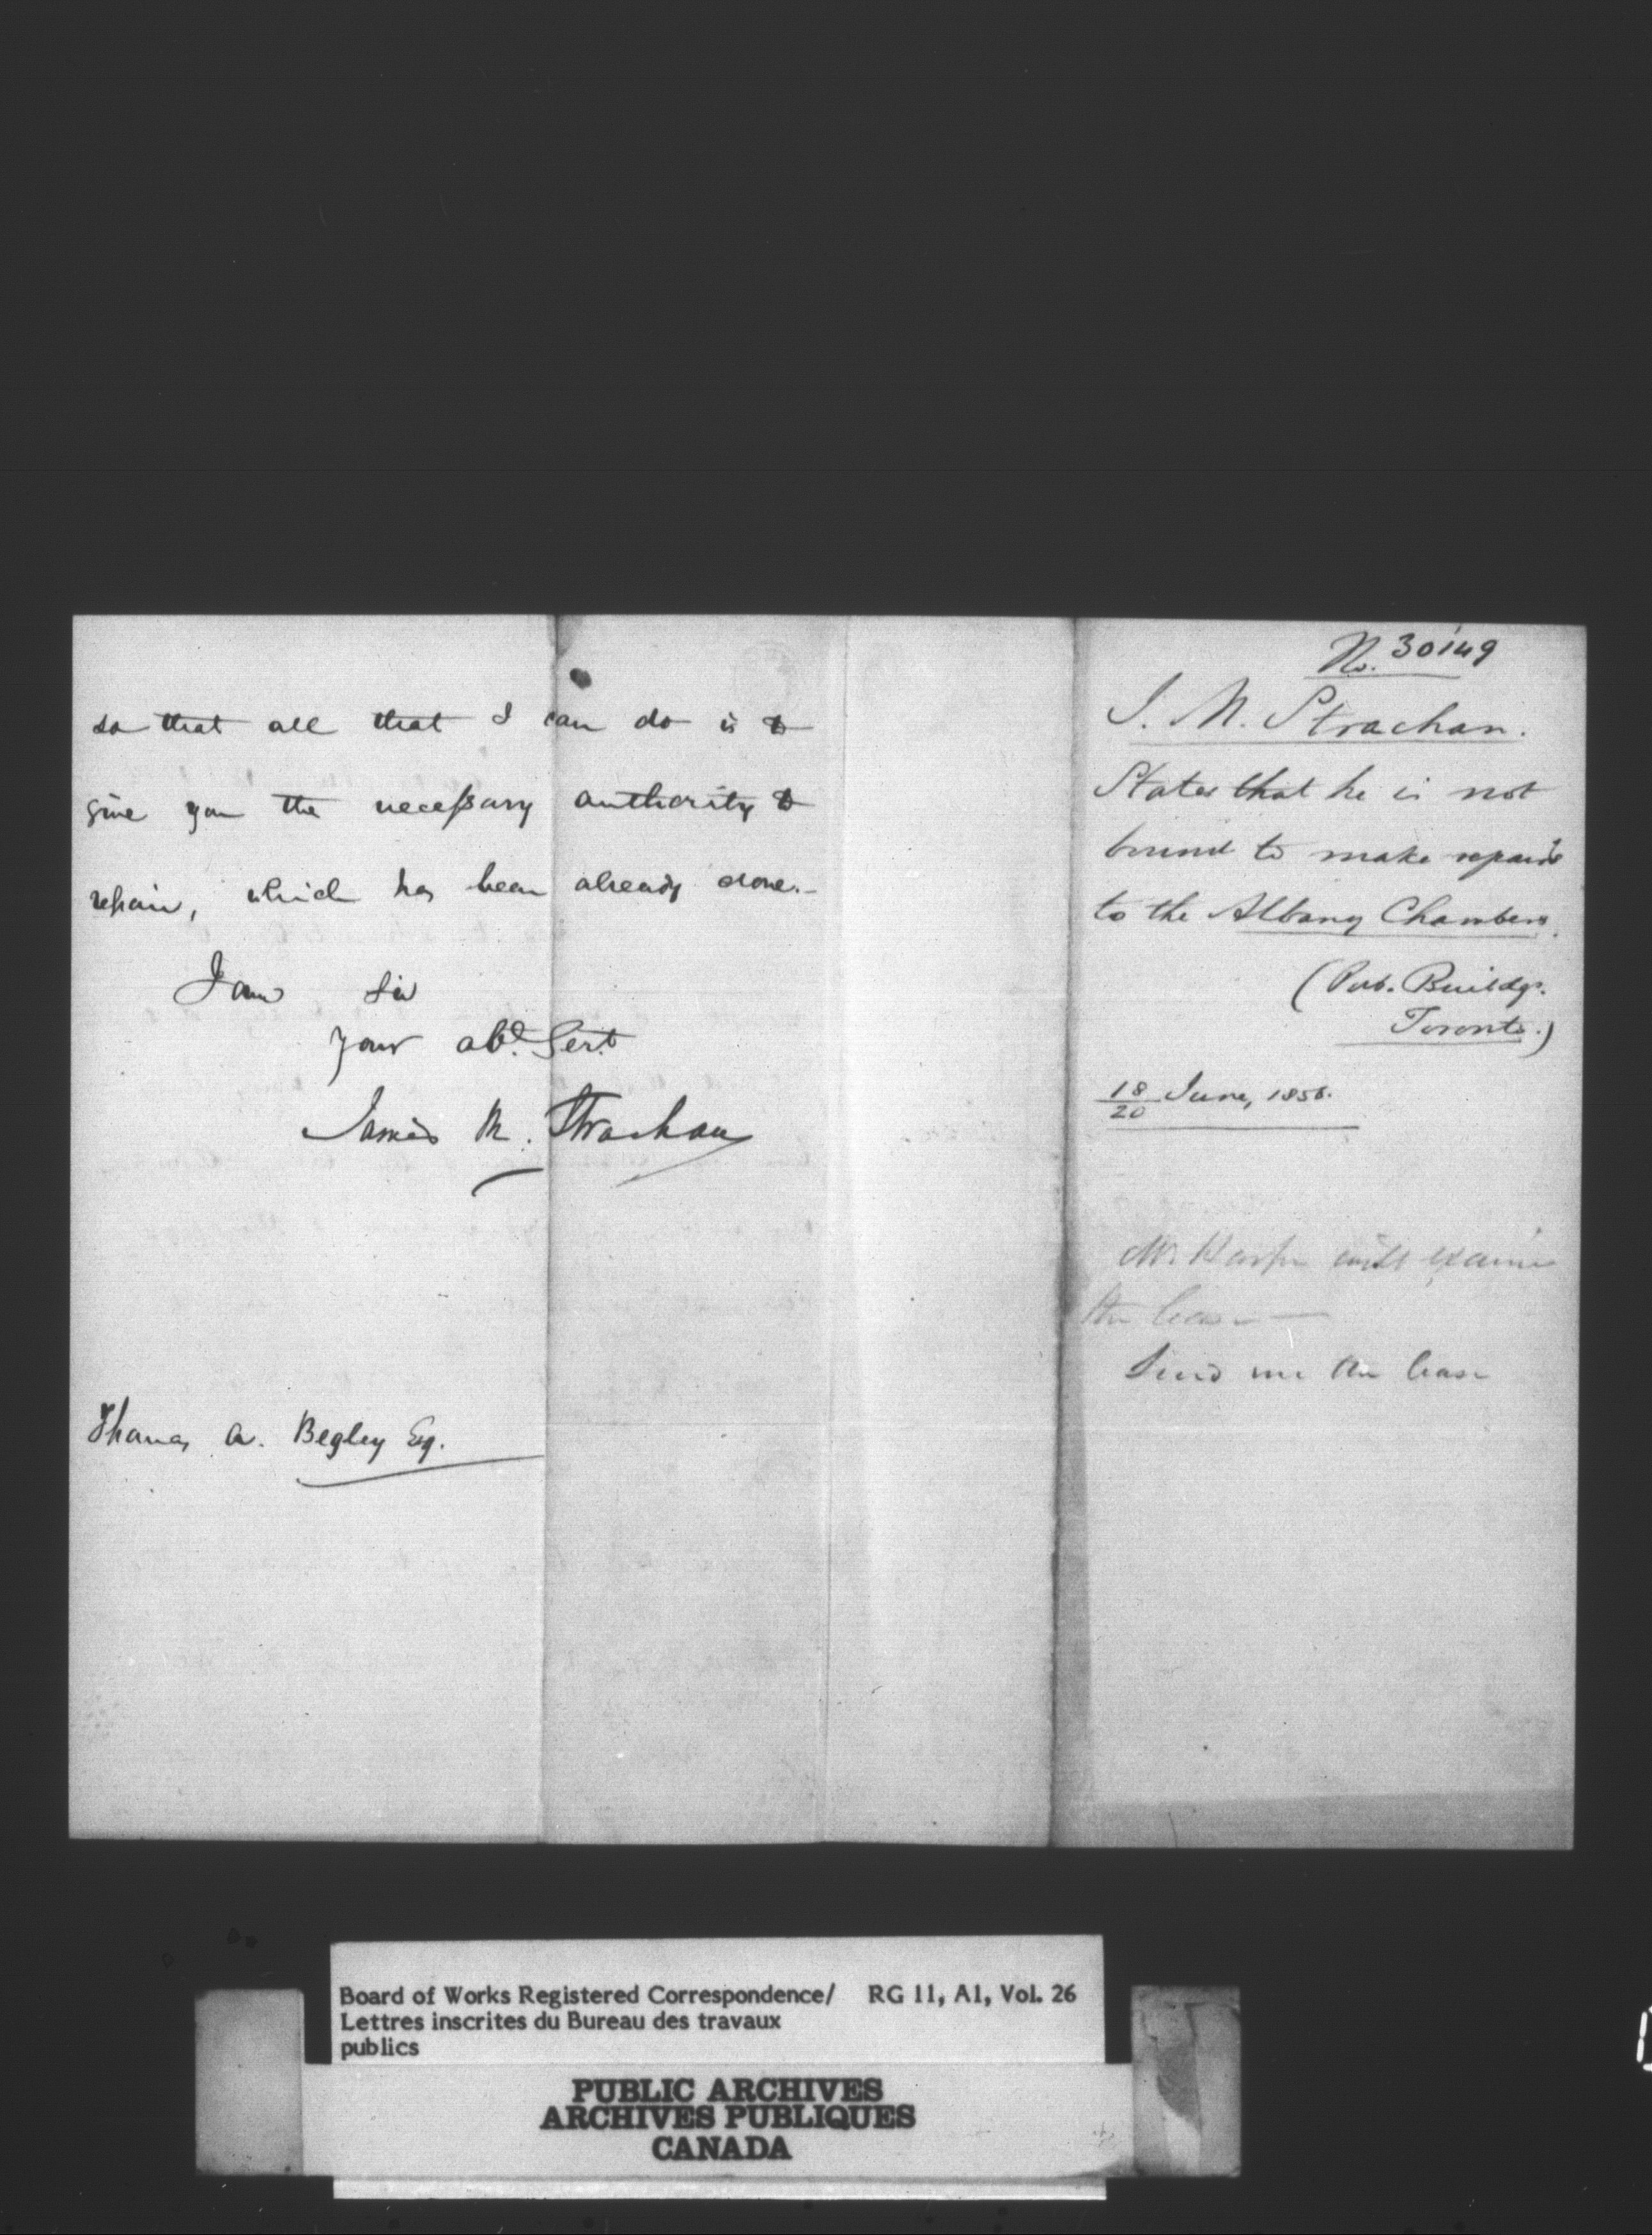 so that all that I can do is to
give you the necessary authority to
repair, which has been already done.-
I am Sir
your obt. Sert.
James M. Strachan
Thomas A. Begley Esq.
No. 30149
J. M. Strachan.
States that he is not
bound to make repairs
to the Albany Chambers.
(Pub. Buildgs.
Toronto.)
18/20 June, 1856.
Mr. will examine
the lease —
Send me the lease
Board of Works Registered Correspondence/ RG 11, A1, Vol. 26
Lettres inscrites du Bureau des travaux
publics
PUBLIC ARCHIVES
ARCHIVES PUBLIQUES
CANADA